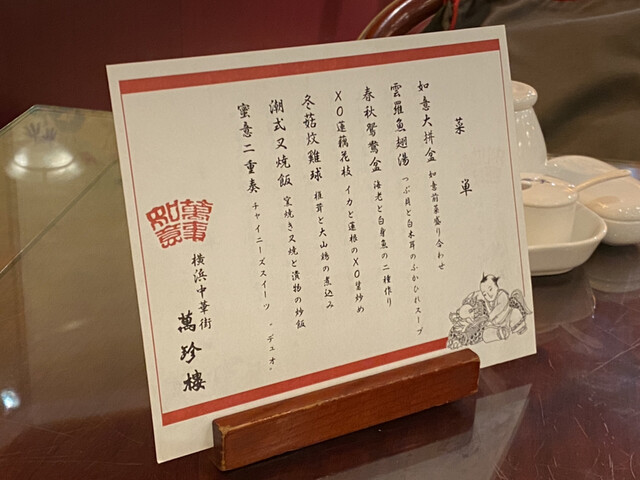 菜単
如意大拼盆 如意前菜盛り合わせ
雲羅魚翅湯 つぶ貝と白木耳のふかひれスープ
春秋鴛鴦盆 海老と白身魚の二種作り
XO蓮藕花枝 イカと蓮根のXO醤炒め
冬菇炆雞球 椎茸と大山鶏の煮込み
潮式叉焼飯 窯焼き叉焼と漬物の炒飯
蜜意二重奏 チャイニーズスイーツ・デュオ・
萬事如意
横浜中華街
萬珍樓